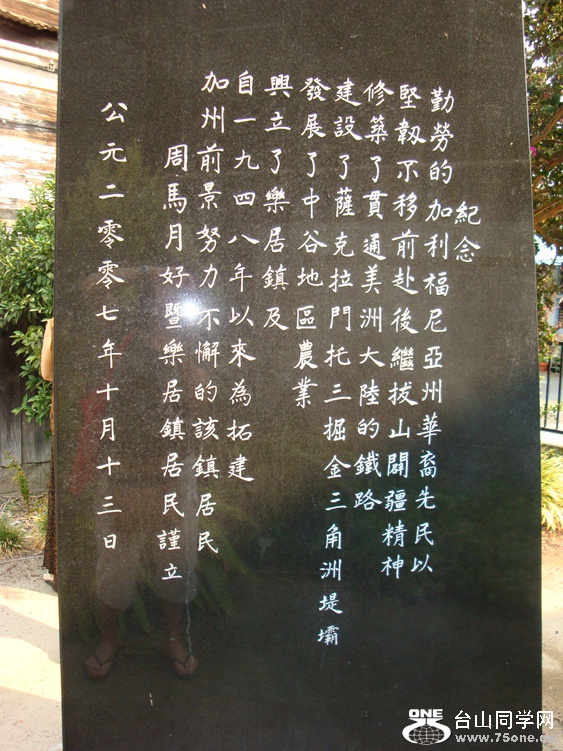 紀念
勤勞的加利福尼亞州華裔先民以
堅韌不移前赴後繼拔山闢疆精神
修築了貫通美洲大陸的鐵路
建設了薩克拉門托三掘金三角洲堤壩
發展了中谷地區農業
興立了樂居鎮及
自一九四八年以來為拓建
加州前景努力不懈的該鎮居民
周馬月好暨樂居鎮居民謹立
公元二零零七年十月十三日
ONE
台山同学网
www.75one.co